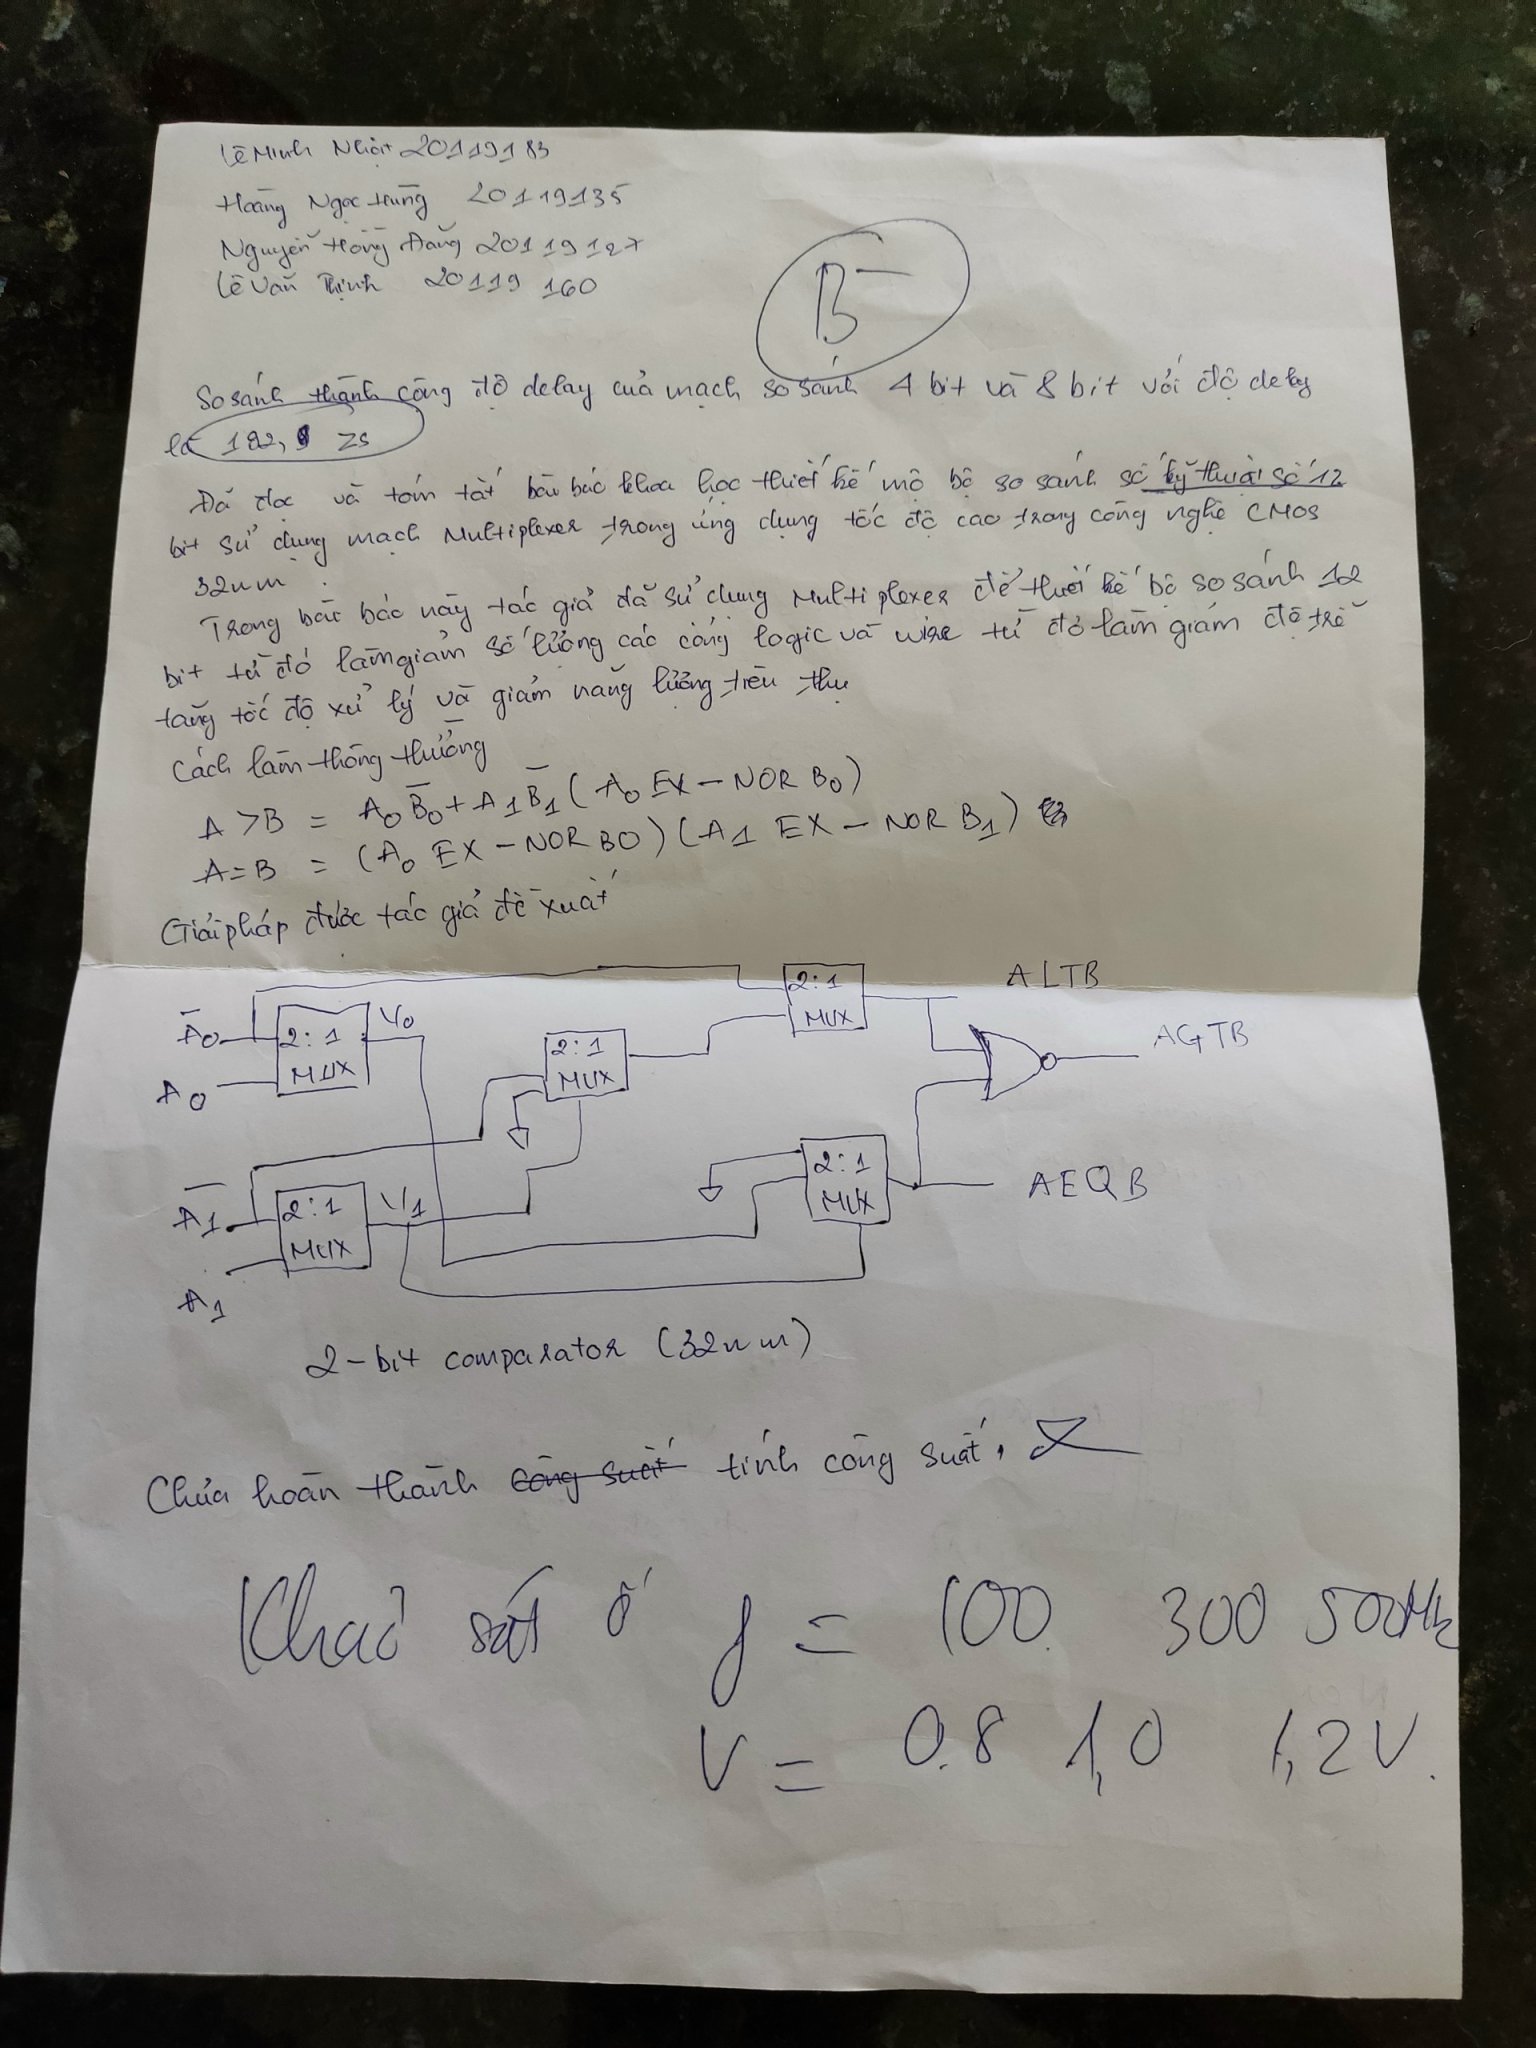 Lê Minh Nhật 20119183
Hoàng Ngọc Hưng 20119135
Nguyễn Hồng Đăng 2011912x
Lê Văn Thịnh 20119 160
B-
So sánh thành công độ delay của mạch so sánh 4 bit và 8 bit với độ delay
là 182, zs
Đã đọc và tóm tắt bài báo khoa học thiết kế mộ bộ so sánh số kỹ thuật số 12
bit sử dụng mạch Multiplexer trong ứng dụng tốc độ cao trong công nghệ CMOS
32nm.
Trong bài báo này tác giả đã sử dụng Multiplexer để thiết kế bộ so sánh 12
bit từ đó làm giảm số lượng các cổng logic và wire từ đó làm giảm độ trễ
tăng tốc độ xử lý và giảm năng lượng tiêu thụ
Cách làm thông thường
A > B = A0 B̅0 + A1 B̅1 (A0 EX-NOR B0)
A = B = (A0 EX-NOR B0)(A1 EX-NOR B1)
Giải pháp được tác giả đề xuất
2:1 MUX
ALTB
A̅0
2:1 MUX
Y0
2:1 MUX
AGTB
A0
A̅1
2:1 MUX
Y1
2:1 MUX
AEQB
A1
2-bit comparator (32nm)
Chưa hoàn thành công suất tính công suất.
Khảo sát ở f = 100 300 500MHz
V = 0.8 1,0 1,2V.